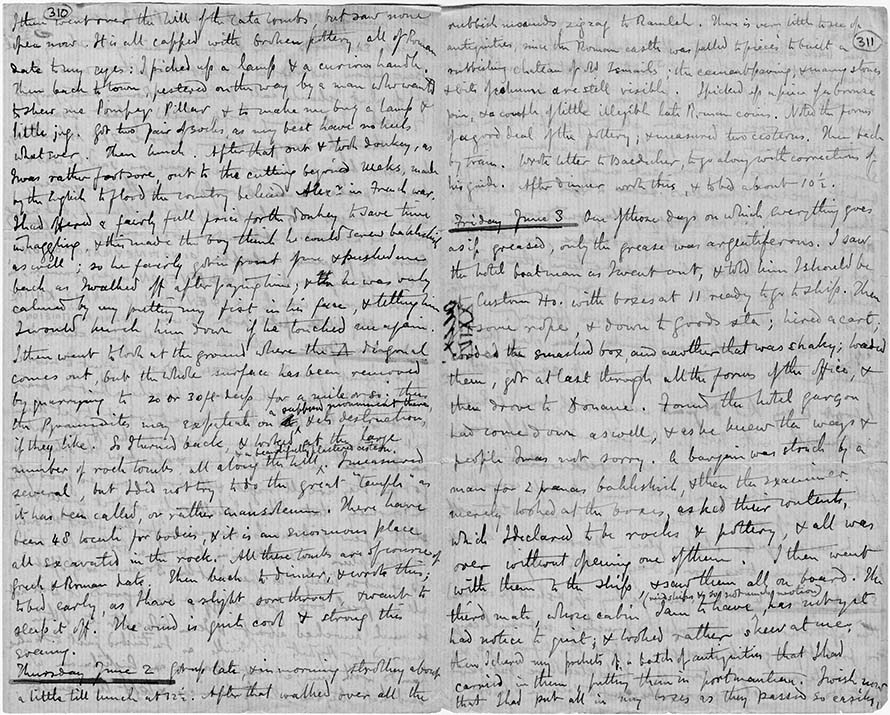 310
I then went over the hill of the catacombs but saw none
open now. It is all capped with broken pottery, all of Roman
date to my eyes: I picked up a lamp & a curious handle.
Then back to town, pestered on the way by a man who wanted
to shew me Pompeys Pillar & to make me buy a lamp &
little jug. Got two pair of socks, as my best have no heels
whatever. Then lunch. After that out & took donkey, as
I was rather footsore out to the cutting beyond Meks, made
by the English to flood the country behind Alexa in French war.
I had offered a fairly full price for the donkey to save time
in haggling, & this made the boy think he could screw bakhshish
as well; so he fairly got in front of me & pushed me
back as I walked off after paying him, & he was only
calmed by my putting my fist in his face, & telling him
I would knock him down if he touched me again.
I then went to look at the ground where the diagonal
comes out, but the whole surface has been removed
by quarrying to 20 or 30 ft deep for a mile or so: thus
the Pyramidites may expatiate on a supposed monument there, & its destruction
if they like. So I turned back, & looked at the large
number of rock tombs all along the hills, & a beautifully plastered cistern. I measured
several, but I did not try to do the great "temple" as
it has been called, or rather mausoleum. There have
been 48 loculi for bodies, & it is an enormous place
all excavated in the rock. All these tombs are of course of
Greek & Roman date. Then back to dinner, & wrote this;
to bed early as I have a slight sore throat & want to
sleep it off. The wind is quite cool & strong this
evening.
Thursday June 2 Got up late & in morning strolling about
a little till lunch at 12½. After that walked over all the
311
rubbish mounds zigzag to Ramleh. There is very little to see of
antiquities, since the Roman castle was pulled to pieces to built a
rubbishing chateau of Ismail's; the cement paving, & many stones
& bits of column are still visible. I picked up a piece of a bronze
pin, & a couple of little illegible late Roman coins. Noted the forms
of a good deal of the pottery, & measured two cisterns. Then back
by train. Wrote letter to Baedeker, to go along with corrections of
his guide. After dinner wrote this, & to bed about 10½.
Friday June 3 One of those days on which everything goes
as if greased, only the grease was argentiferous. I saw
the hotel boatman as I went out, & told him I should be
at Custom Ho. with boxes at 11 ready to go to ship. Then
some rope, & down to goods sta; hired a cart;
corded the smashed box and another that was shaky; loaded
them, got at last through all the forms of the office, &
then drove to Douane. Found the hotel garçon
had come down as well, & as he knew the ways &
people I was not sorry. A bargain was struck by a
man for 2 francs bakhshish, & then the examiner
merely looked at the boxes, asked their contents,
which I declared to be rocks & pottery, & all was
over without opening one of them. I then went
with them to the ship, & saw them all on board. The
third mate, whose cabin I am to have, has not yet
had notice to quit; & looked rather skew at me,
then I cleared my pockets of a batch of antiquities that I had
carried in them, putting them in portmanteau. I wish now
that I had put all in my boxes as they passed so easily,
XXIV